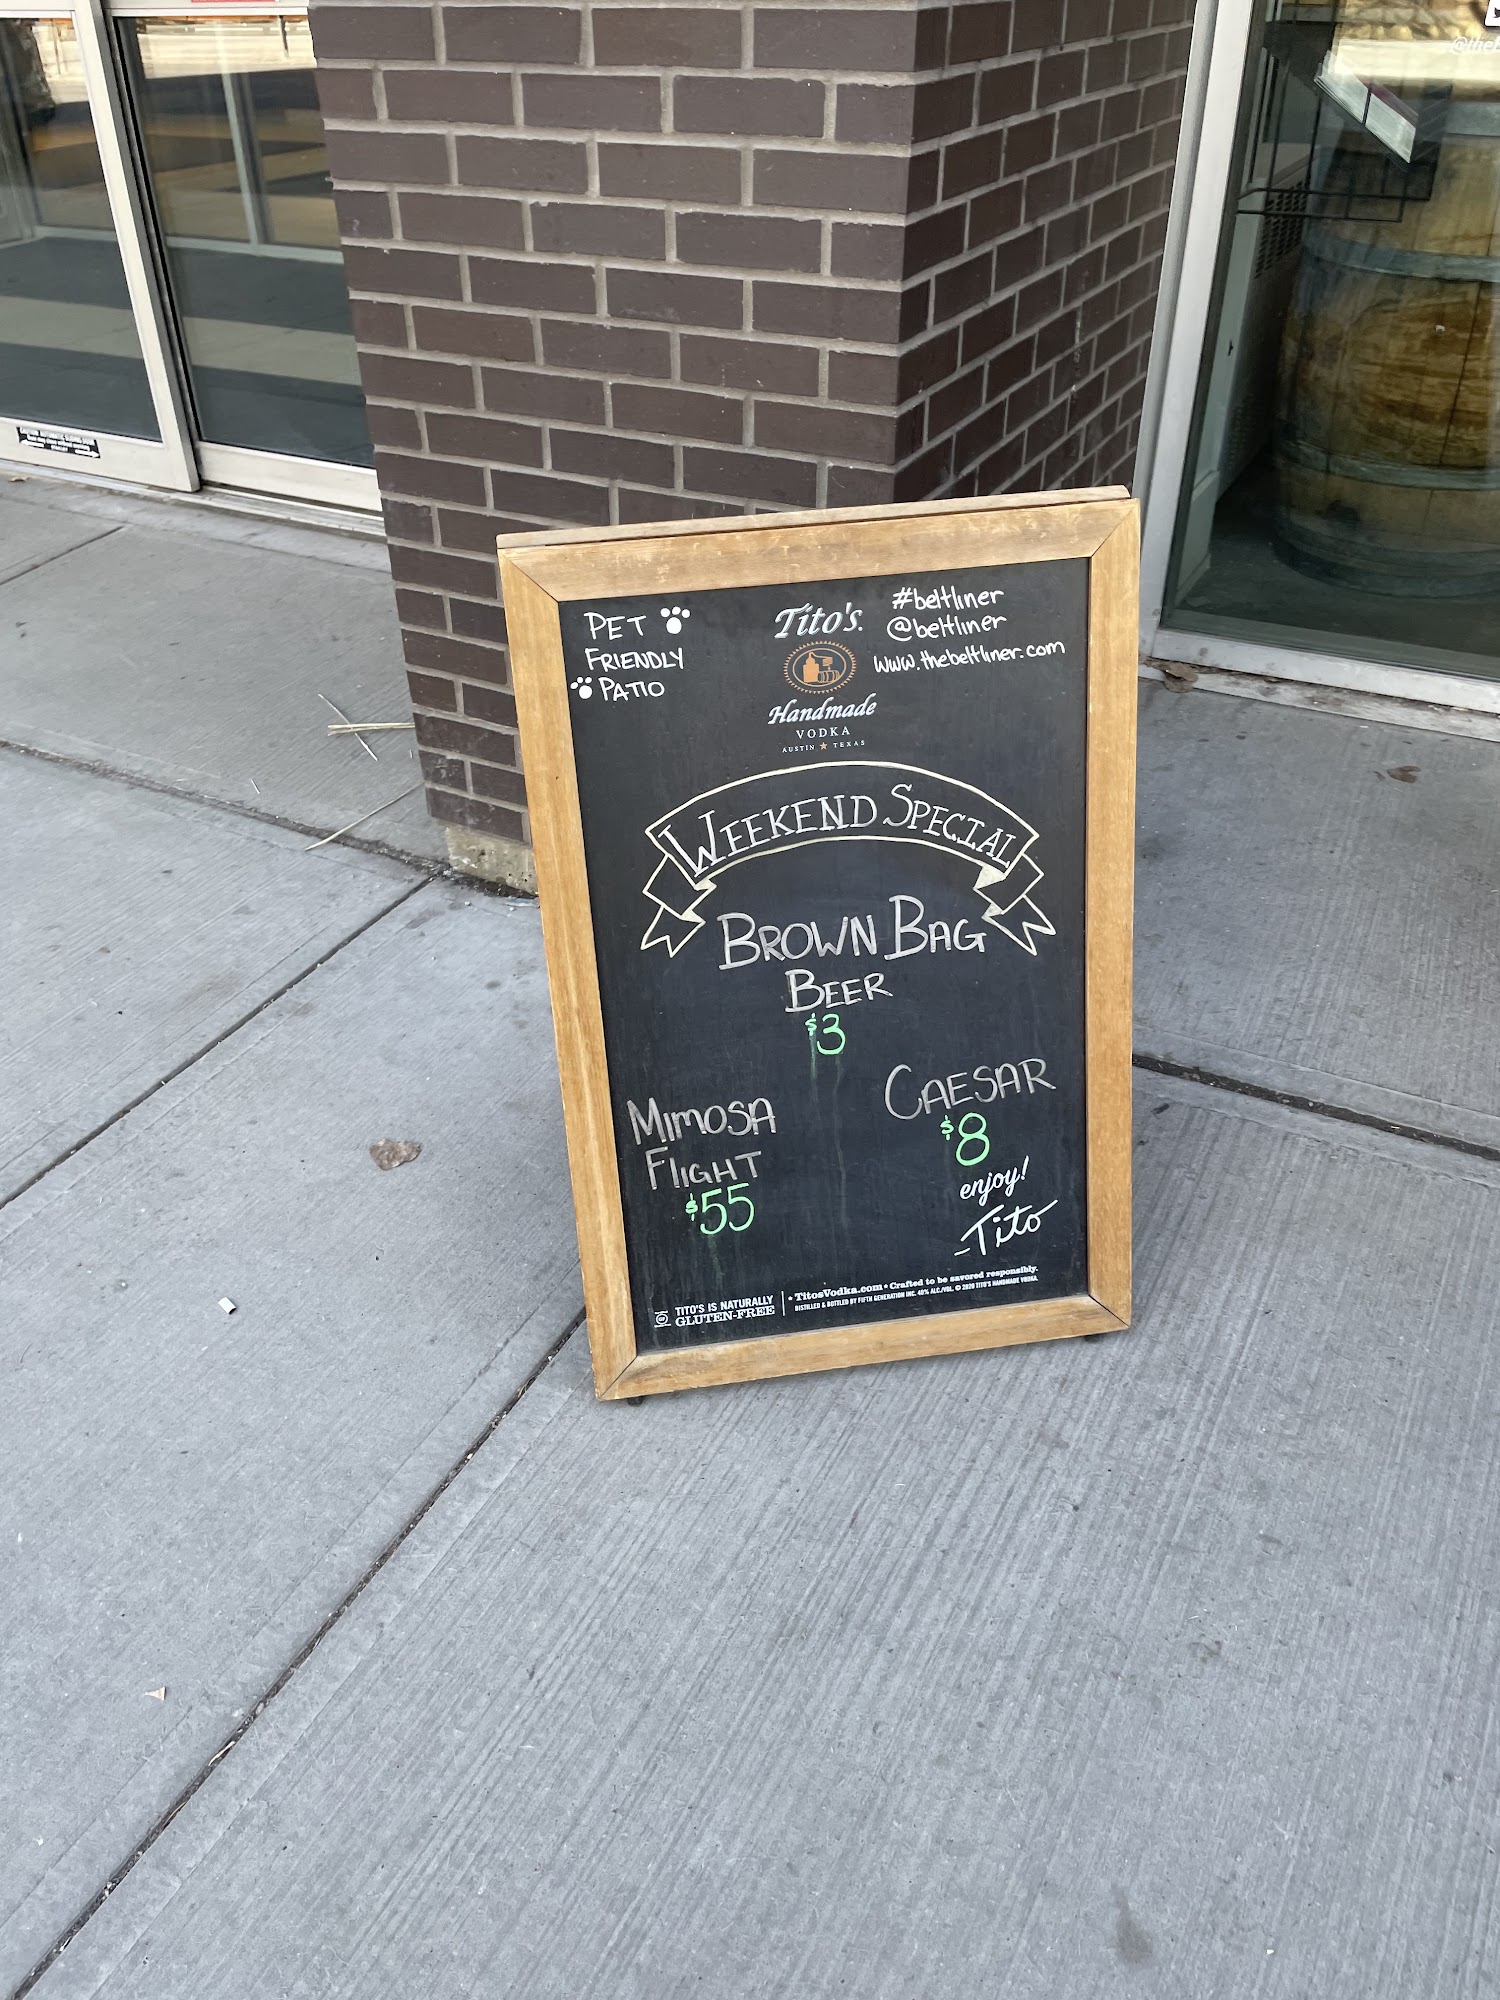 PET
FRIENDLY
PATIO
Tito's.
Handmade
VODKA
AUSTIN ★ TEXAS
#beltliner
@beltliner
www.thebeltliner.com
WEEKEND SPECIAL
BROWN BAG
BEER
$3
MIMOSA
FLIGHT
$55
CAESAR
$8
enjoy!
-Tito
TITO'S IS NATURALLY
GLUTEN-FREE
• TitosVodka.com • Crafted to be savored responsibly.
DISTILLED & BOTTLED BY FIFTH GENERATION INC. 40% ALC./VOL. © 2020 TITO'S HANDMADE VODKA.